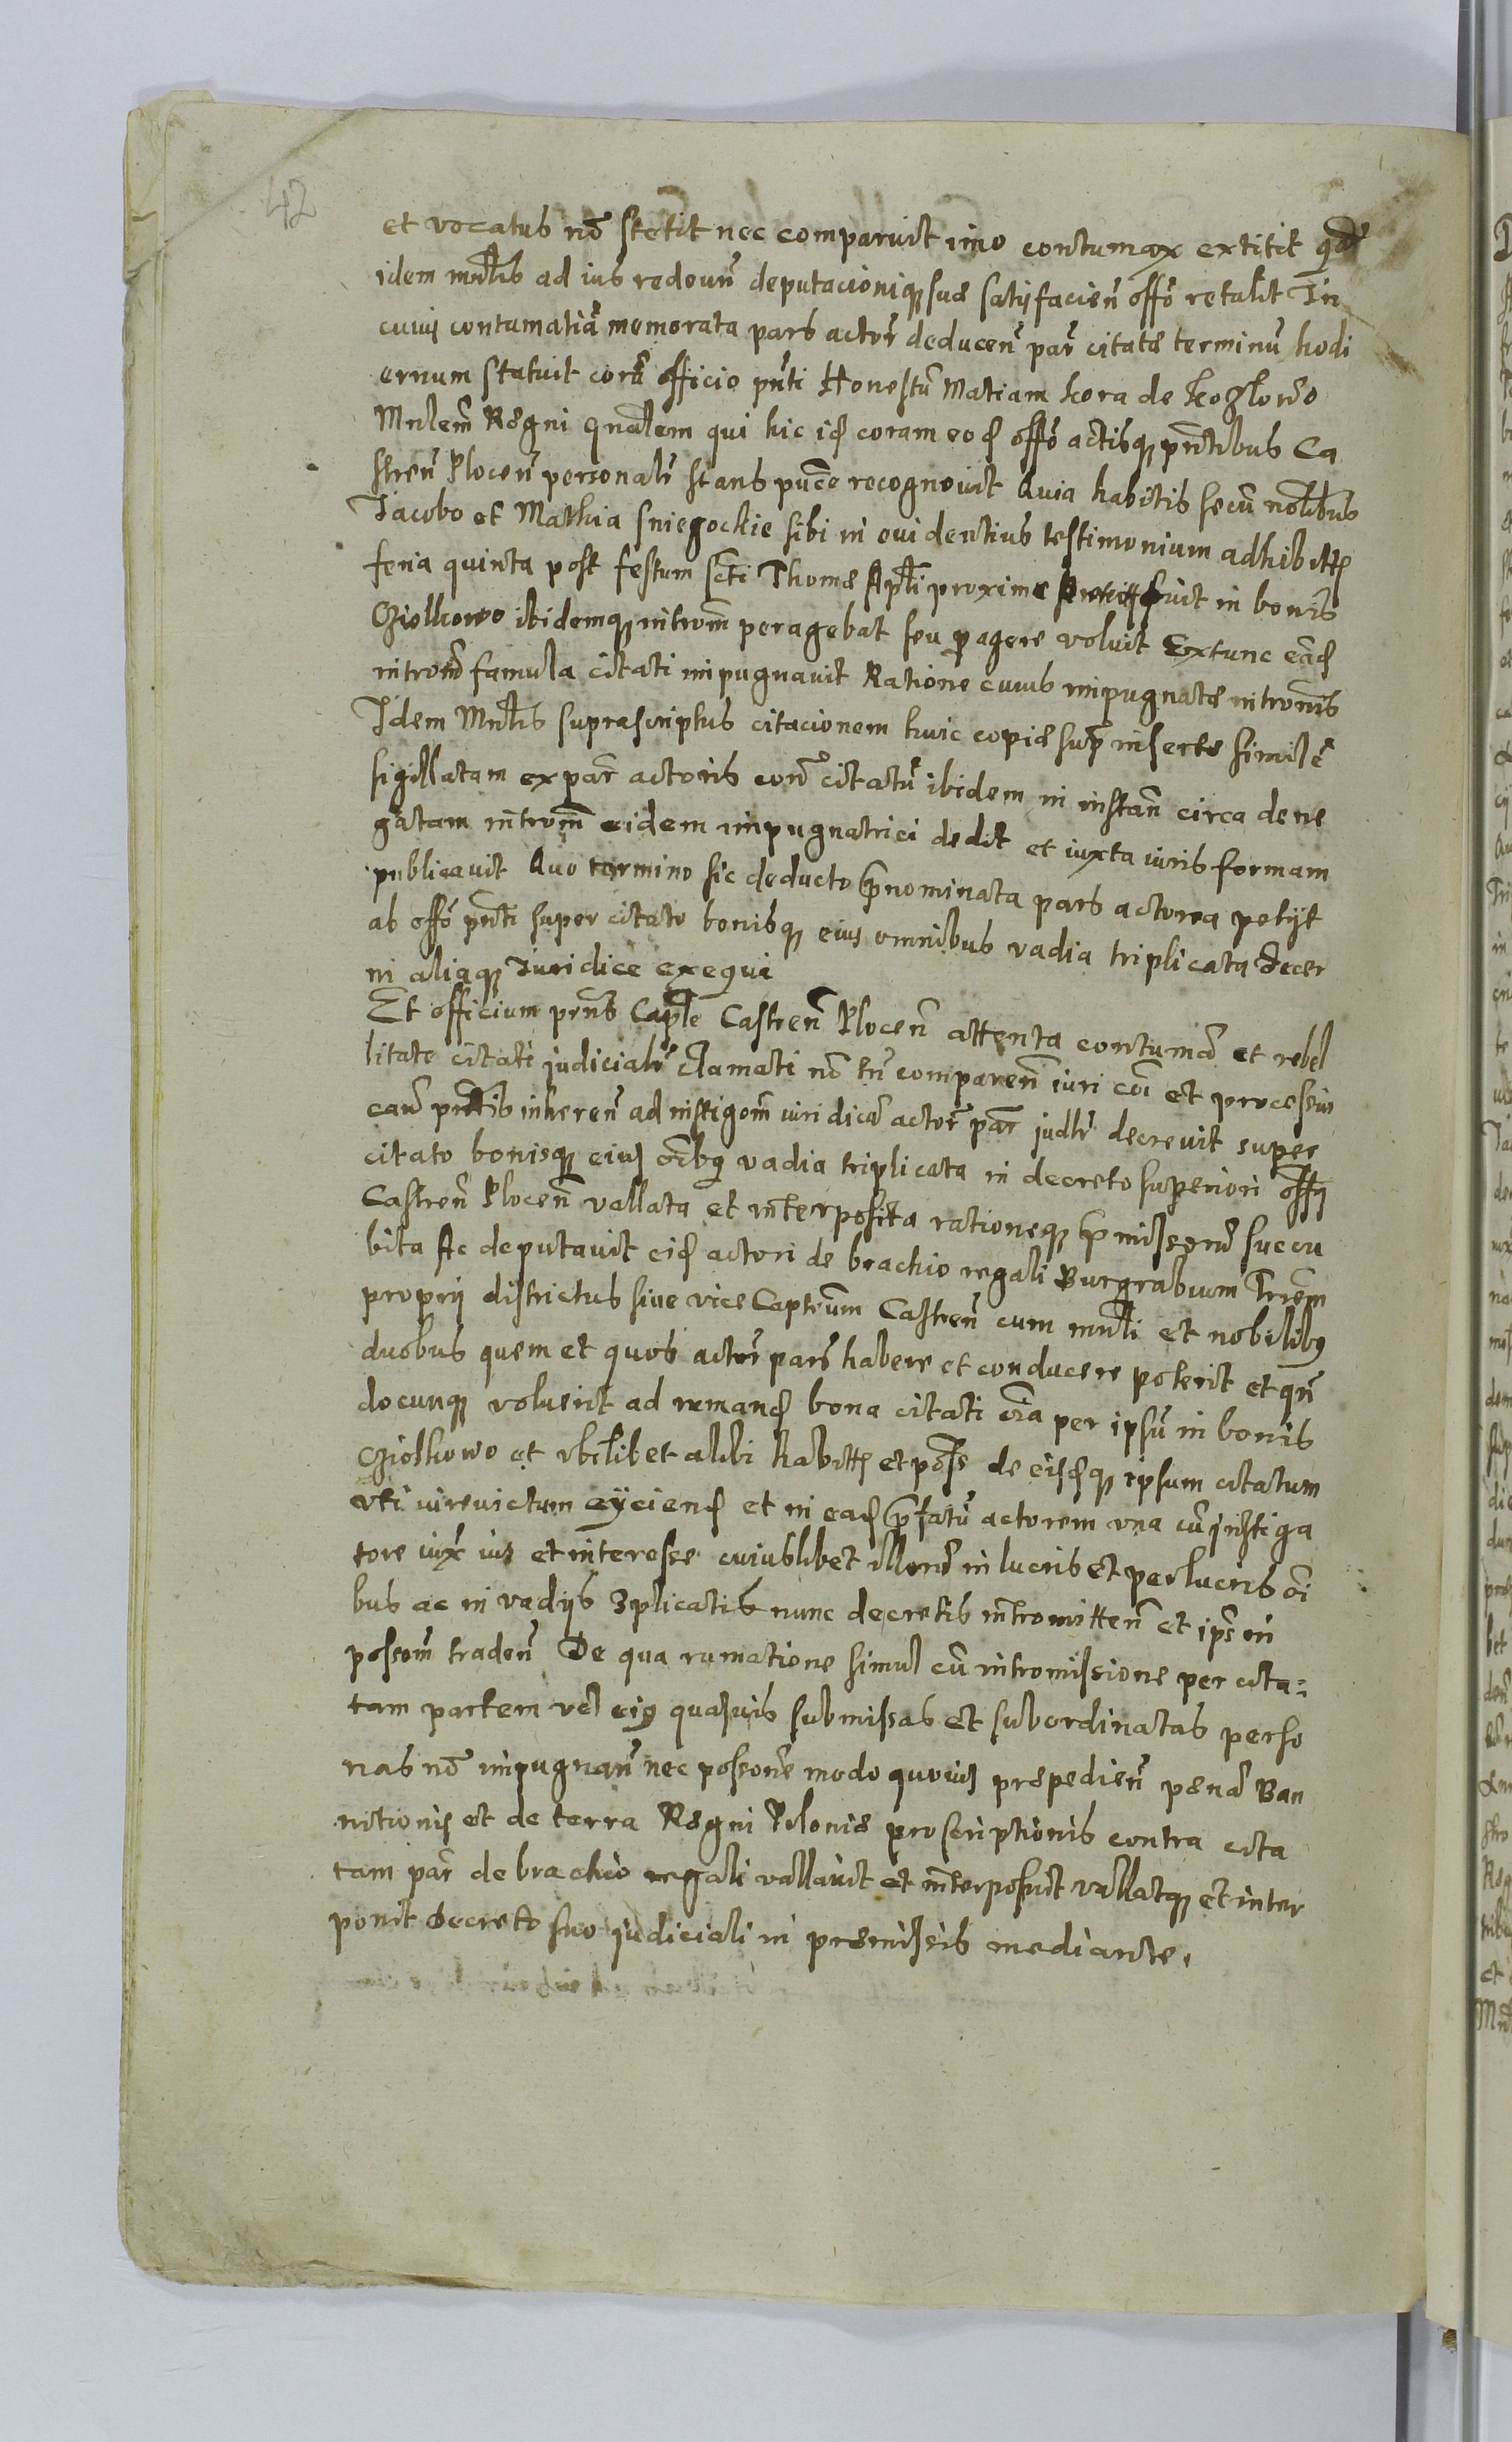 42
et vocatus nõ stetit nec comparuit imo contumax extitit qđ
idem mnłris ad ius redeuñ deputacioniqꝫ suæ satisfacieñ offõ retulit In
cuius contumatiã memorata pars actoř deduceñ pař citatæ terminũ hodi
ernum statuit corã officio pñti Honestũ Matiam kora de kozlowo
Mnlem̃ Regni Gnalem qui hic iđ coram eođ offõ actisqꝫ pñtibus Ca
streñ Ploceñ personalř stans pucẽ recognouit Quia habitis secũ nołibus
Jacobo et Mathia sniegockie sibi in euidentius testimonium adhibitis
feria quinta post festum Scti Thomæ Apłi proxime fuit in bonis
Giolkowo ibidemqꝫ introm̃ peragebat seu pagere voluit Extunc eađ
introm̃ famula citati impugnauit Ratione cuius impugnatæ introm̃is
Idem Mnłris suprascriptus citacionem huic copiæ sup̃ insertæ similẽ
sigillatam ex pař actoris coñ citatũ ibidem in instañ circa dene
gatam introm̃ eidem impugnatrici dedit et iuxta iuris formam
publicauit Quo termino sic deducto prnominata pars actorea petijt
ab offõ pñti super citato bonisqꝫ eius omnibus vadia triplicata decer
ni aliaqꝫ Juridice exequi
Et officium pñs Capłe Castreñ Ploceñ attenta contumã et rebel
litate citati judicialř clamati nõ tñ compareñ iuri cõi et processui
cauř pñtis inhereñ ad instigom̃ iuridicã actoř pař judłr decrevit super
citato bonisqꝫ eius oĩbꝰ vadia triplicata in decreto superiori offy
Castreñ Ploceñ vallata et interposita rationeqꝫ pmissorũ succu
bita Ac deputauit eiđ actori de brachio regali Burgrabium Trrem̃
proprij districtus siue vice Captrum Castreñ cum mnłri et nobilibꝰ
duobus quem et quos actoř pars habere et conducere poterit et qñ
documqꝫ voluerit ad rumanđ bona citati oĩa per ipsũ in bonis
Giolkowo et vbilibet alibi habitis et poss de eisđqꝫ ipsum citatum
vti iurevictum eÿcienđ et in eađ pfatũ actorem vna cũ instiga
tore iux̃ ius et interesse cuiuslibet illorũ in lucris et perlucris oĩ
bus ac in vadijs 3plicatis nunc decretis intromitteñ et ips in
possom̃ tradeñ De qua rumatione simul cũ intromissione per cita=
tam partem vel eiꝰ quasuis submissas et subordinatas perso
nas nõ impugnañ nec possorẽ modo quouis præpedieñ pænã Ban
nitionis et de terra Regni Poloniæ proscriptionis contra cita
tam pař de brachio regali vallauit et interposuit vallatqꝫ et inter
ponit decreto suo judiciali in præmissis mediante.